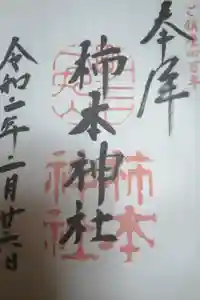 ご鎮座四百年
奉拝
柿本神社
柿本
神社
令和二年二月廿六日